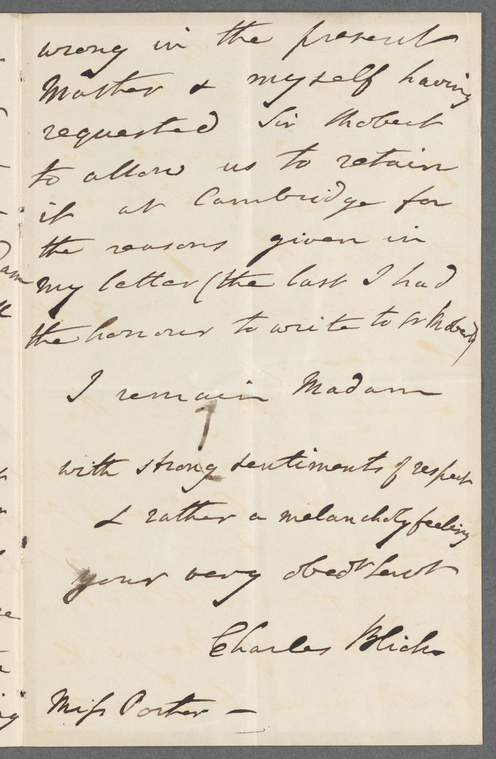 wrong in the present
Master & myself having
requested Sir Robert
to allow us to retain
it at Cambridge for
the reasons given in
my letter (the last I had
the honour to write to Sr Robert)
I remain Madam
with strong sentiments of respect
& rather a melancholy feeling
your very obedt Servt
Charles Blick
Miss Porter —